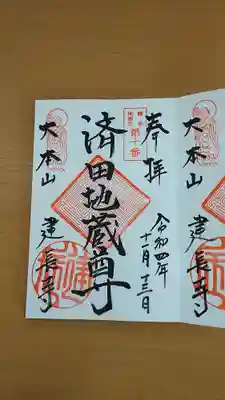 奉拝
令和四年
十一月十三日
第十番
済田地蔵尊
大本山
建長寺
大本山
建長寺